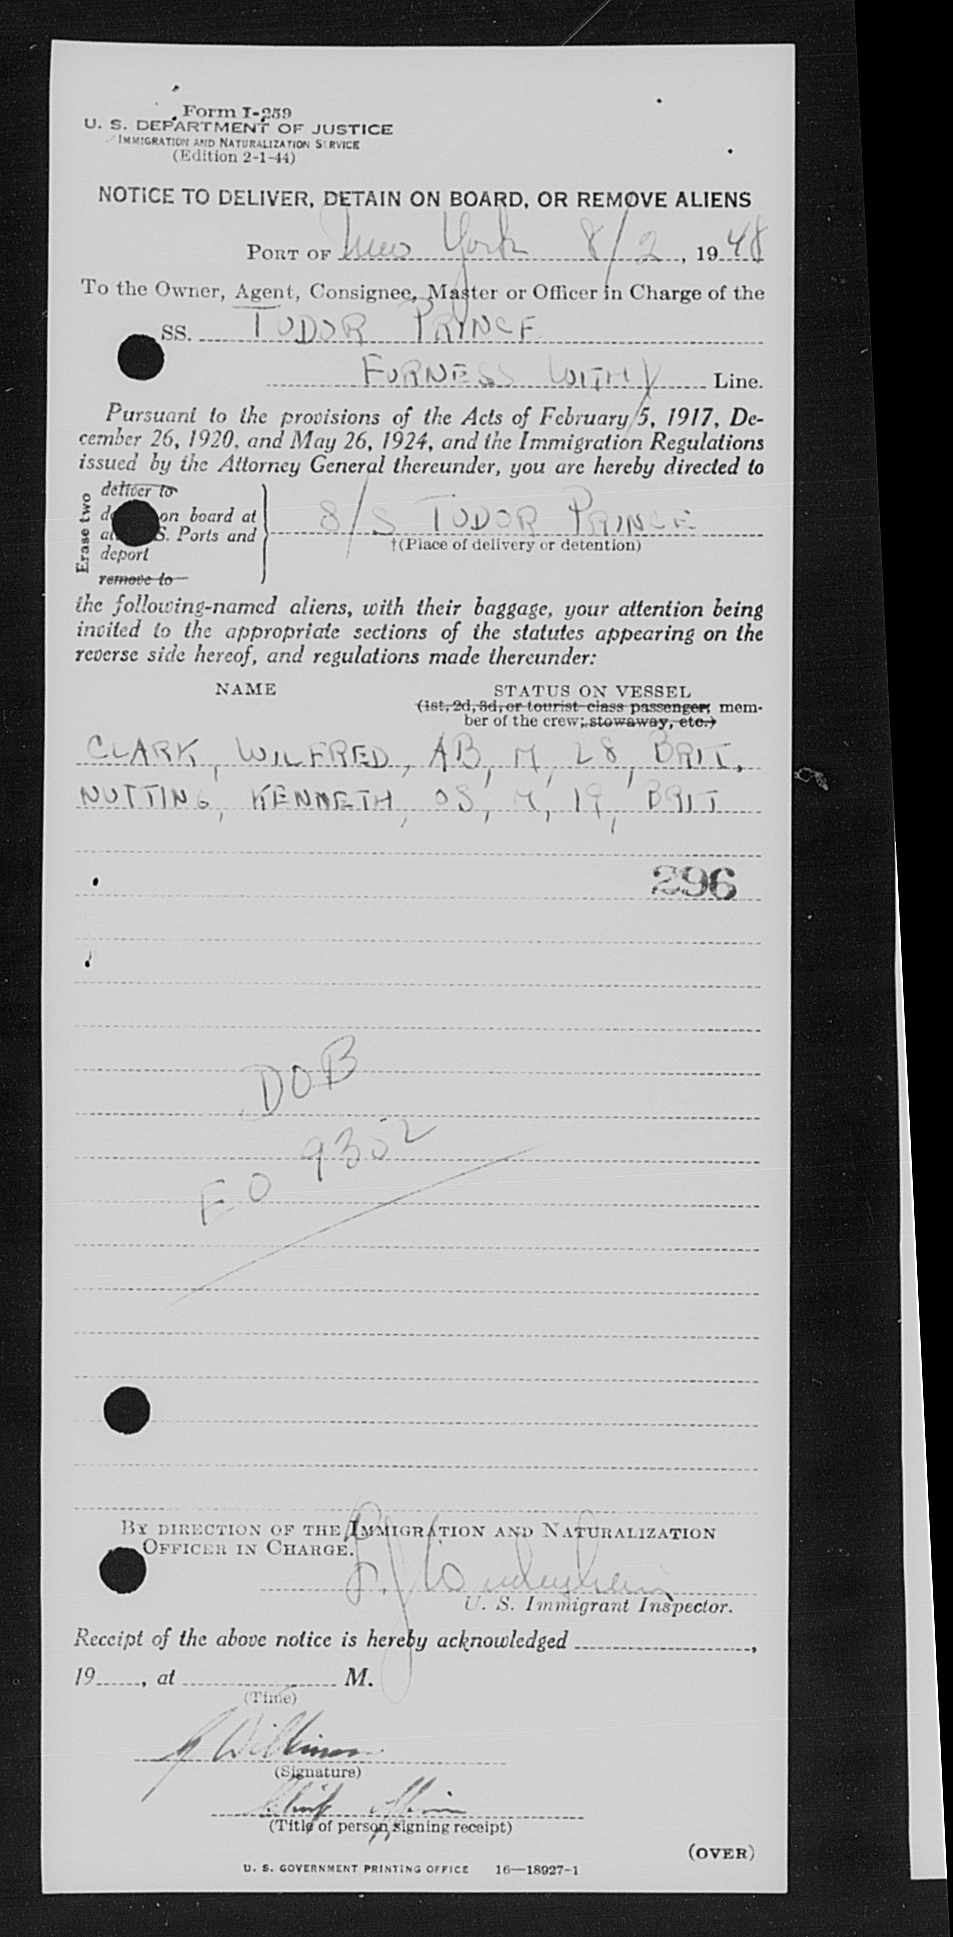 Form I-259
U. S. DEPARTMENT OF JUSTICE
IMMIGRATION AND NATURALIZATION SERVICE
(Edition 2-1-44)
NOTICE TO DELIVER, DETAIN ON BOARD, OR REMOVE ALIENS
PORT OF New York 8/2, 1948
To the Owner, Agent, Consignee, Master or Officer in Charge of the
SS. TUDOR PRINCE
FURNESS WITHY Line.
Pursuant to the provisions of the Acts of February 5, 1917, De-
cember 26, 1920, and May 26, 1924, and the Immigration Regulations
issued by the Attorney General thereunder, you are hereby directed to
Erase two
deliver to
on board at
S. Ports and
deport
remove to
S/S TUDOR PRINCE
†(Place of delivery or detention)
the following-named aliens, with their baggage, your attention being
invited to the appropriate sections of the statutes appearing on the
reverse side hereof, and regulations made thereunder:
NAME STATUS ON VESSEL
(1st, 2d, 3d, or tourist class passenger; mem-
ber of the crew; stowaway, etc.)
CLARK, WILFRED, AB, M, 28, BRIT.
NUTTING, KENNETH, OS, M, 19, BRIT
296
DOB
EO 9352
BY DIRECTION OF THE IMMIGRATION AND NATURALIZATION
OFFICER IN CHARGE.
U. S. Immigrant Inspector.
Receipt of the above notice is hereby acknowledged ,
19 , at M.
(Time)
(Signature)
Chief Officer
(Title of person signing receipt)
(OVER)
U. S. GOVERNMENT PRINTING OFFICE 16—18927-1